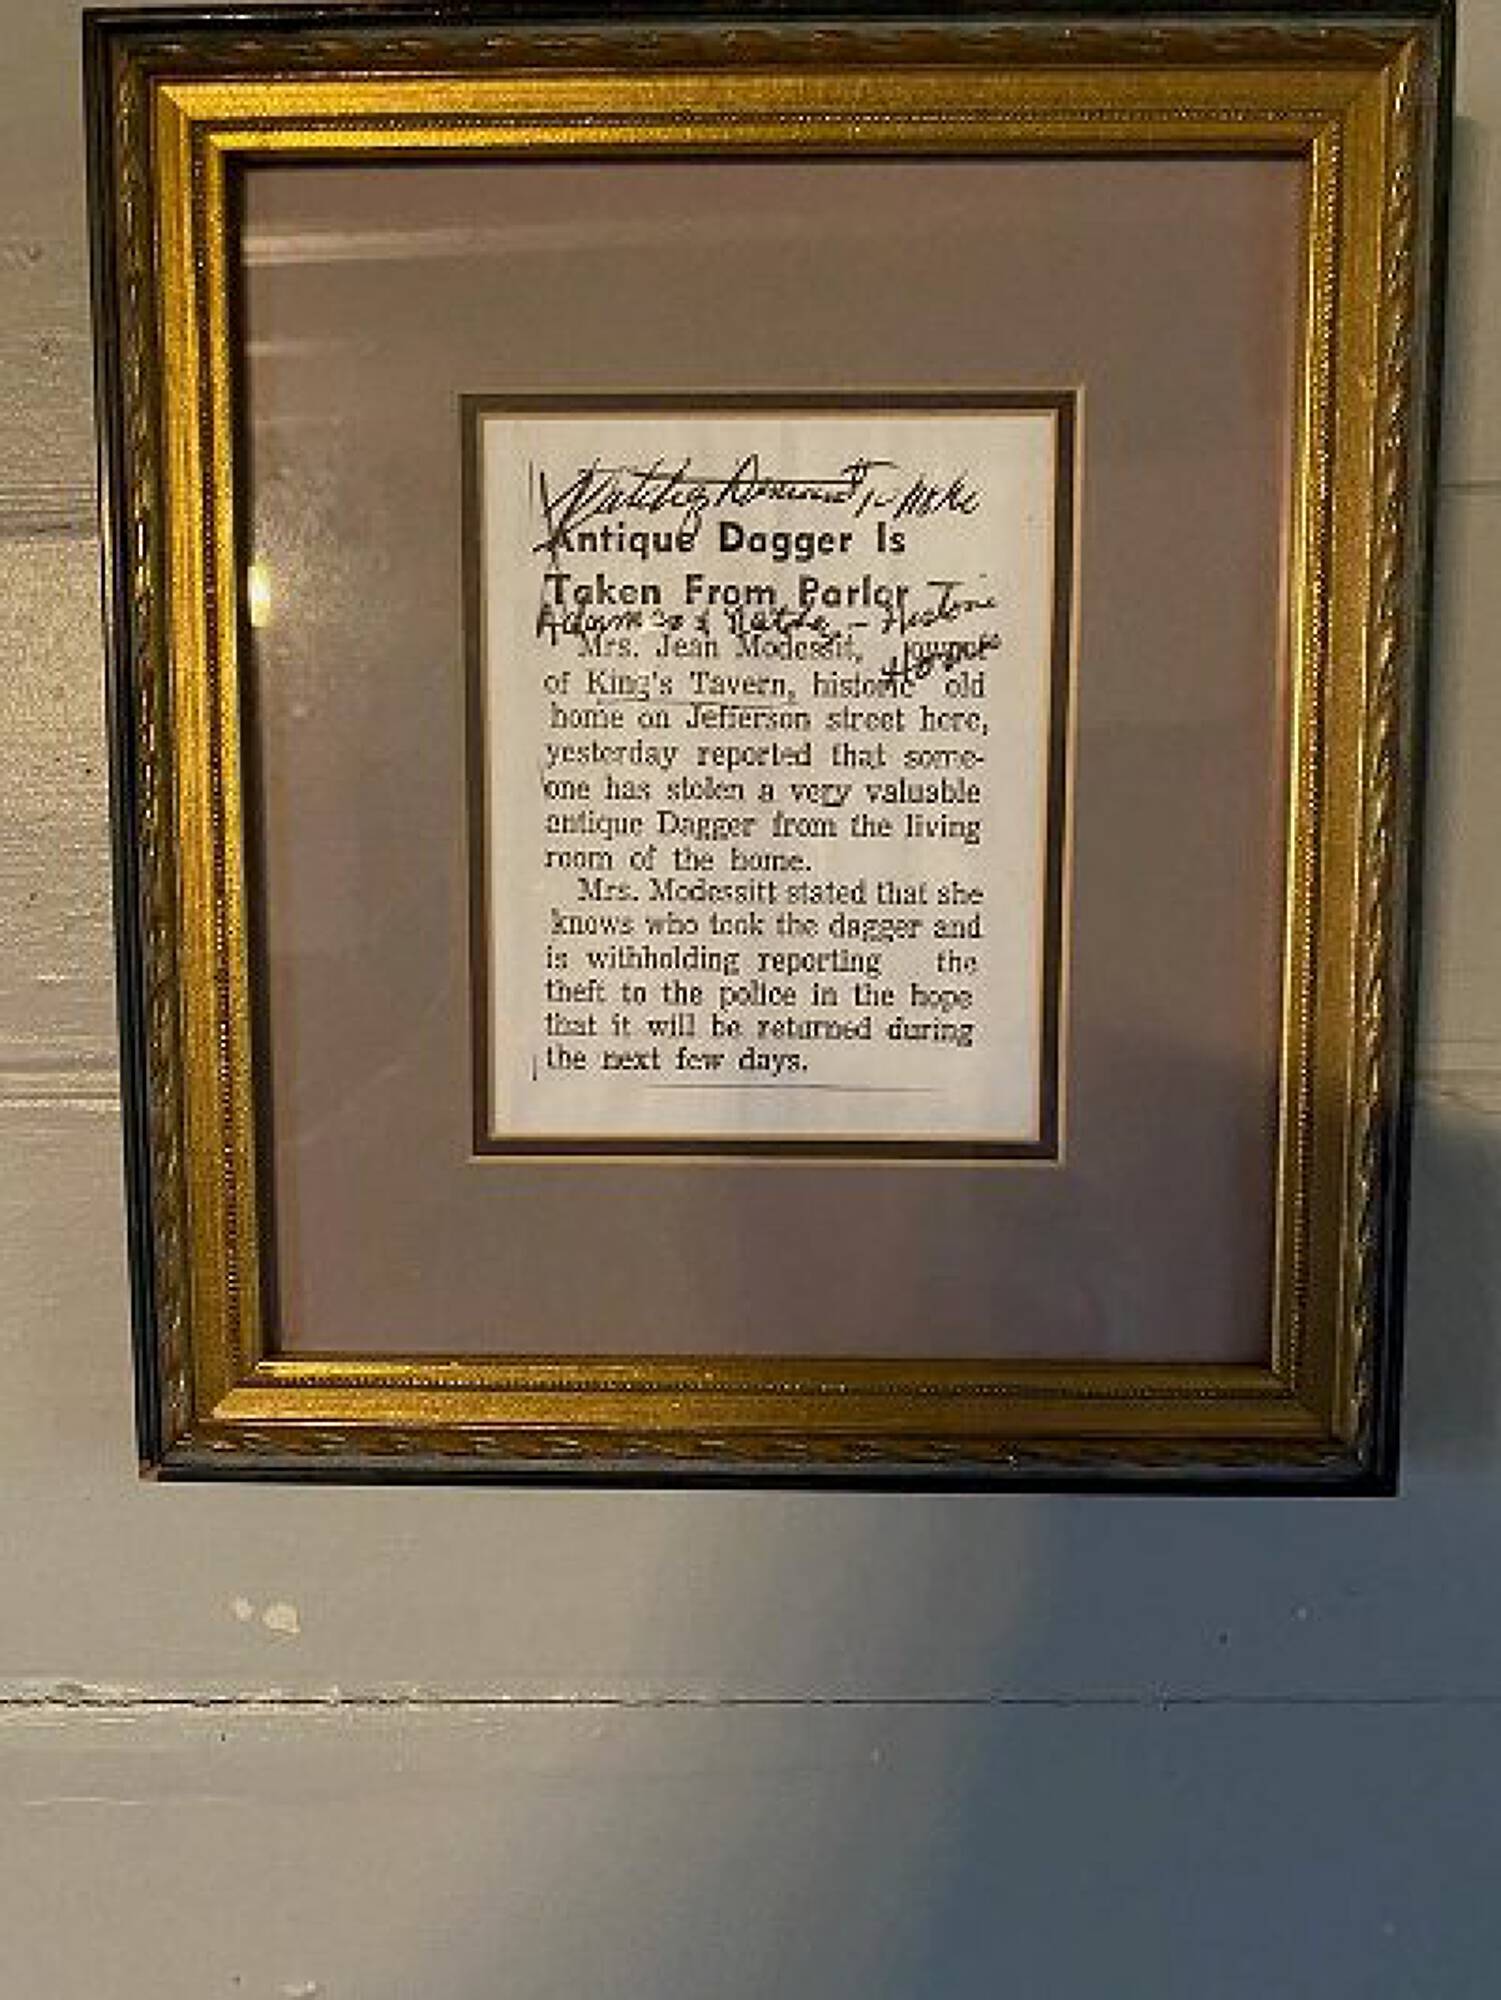 Natchez Democrat
Antique Dagger Is
Taken From Parlor
Adams Natchez - Historic
Homes
Mrs. Jean Modessit, owner
of King's Tavern, historic old
home on Jefferson street here,
yesterday reported that some-
one has stolen a very valuable
antique Dagger from the living
room of the home.
Mrs. Modessitt stated that she
knows who took the dagger and
is withholding reporting the
theft to the police in the hope
that it will be returned during
the next few days.